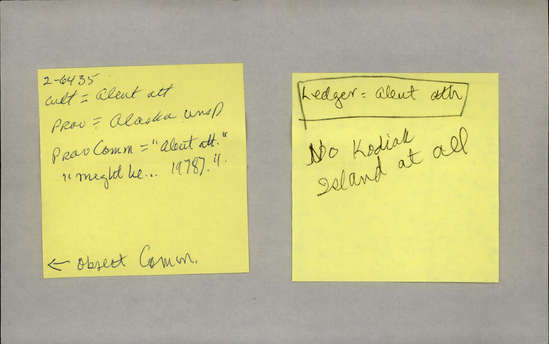 2-6435
cult = Aleut att
Prov = Alaska unsp
Prov Comm = "Aleut att."
"might be... 1978?".
← Object Comm.
Ledger = Aleut attr
No Kodiak
Island at all